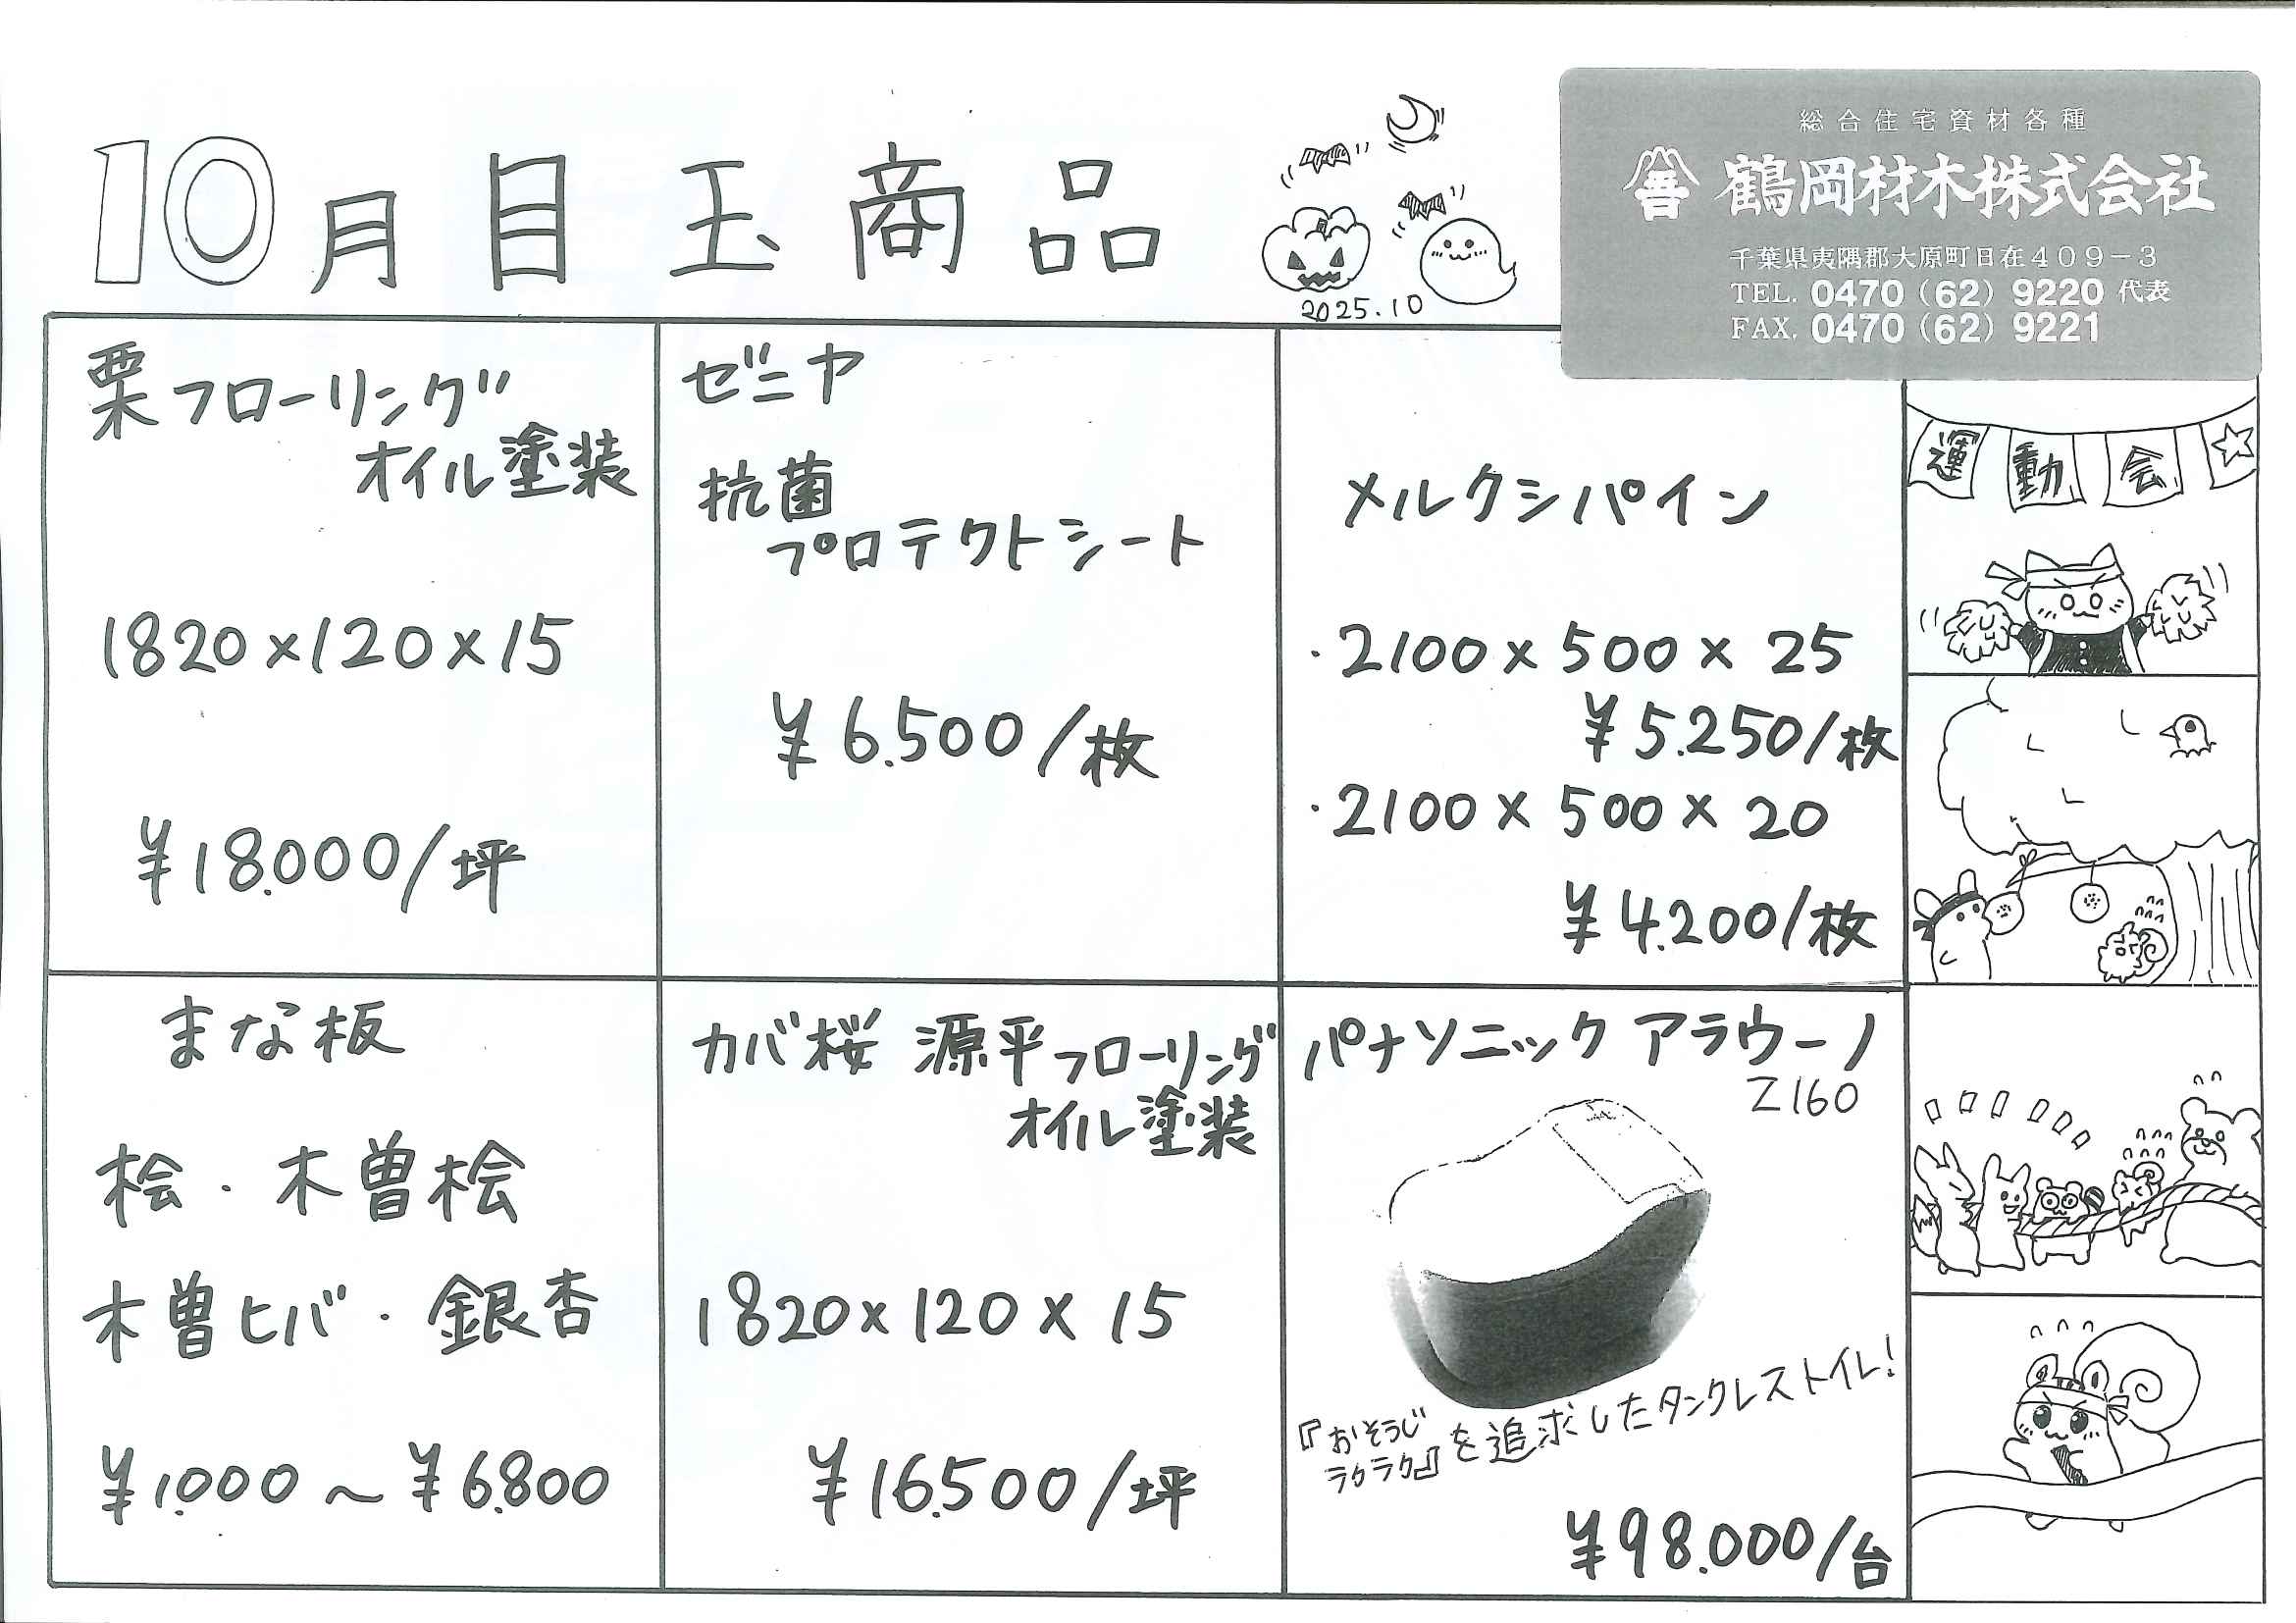 10月 目玉商品
2025.10
総合住宅資材各種
善 鶴岡材木株式会社
千葉県夷隅郡大原町日在409-3
TEL. 0470 (62) 9220 代表
FAX. 0470 (62) 9221
栗フローリング
オイル塗装
1820×120×15
¥18.000/坪
ゼニヤ
抗菌
プロテクトシート
¥6.500/枚
メルクシパイン
・2100×500×25
¥5.250/枚
・2100×500×20
¥4.200/枚
運動会
まな板
桧・木曽桧
木曽ヒバ・銀杏
¥1.000～¥6.800
カバ桜 源平フローリング
オイル塗装
1820×120×15
¥16.500/坪
パナソニック アラウーノ
Z160
『おそうじ
ラクラク』を追求したタンクレストイレ!
¥98.000/台